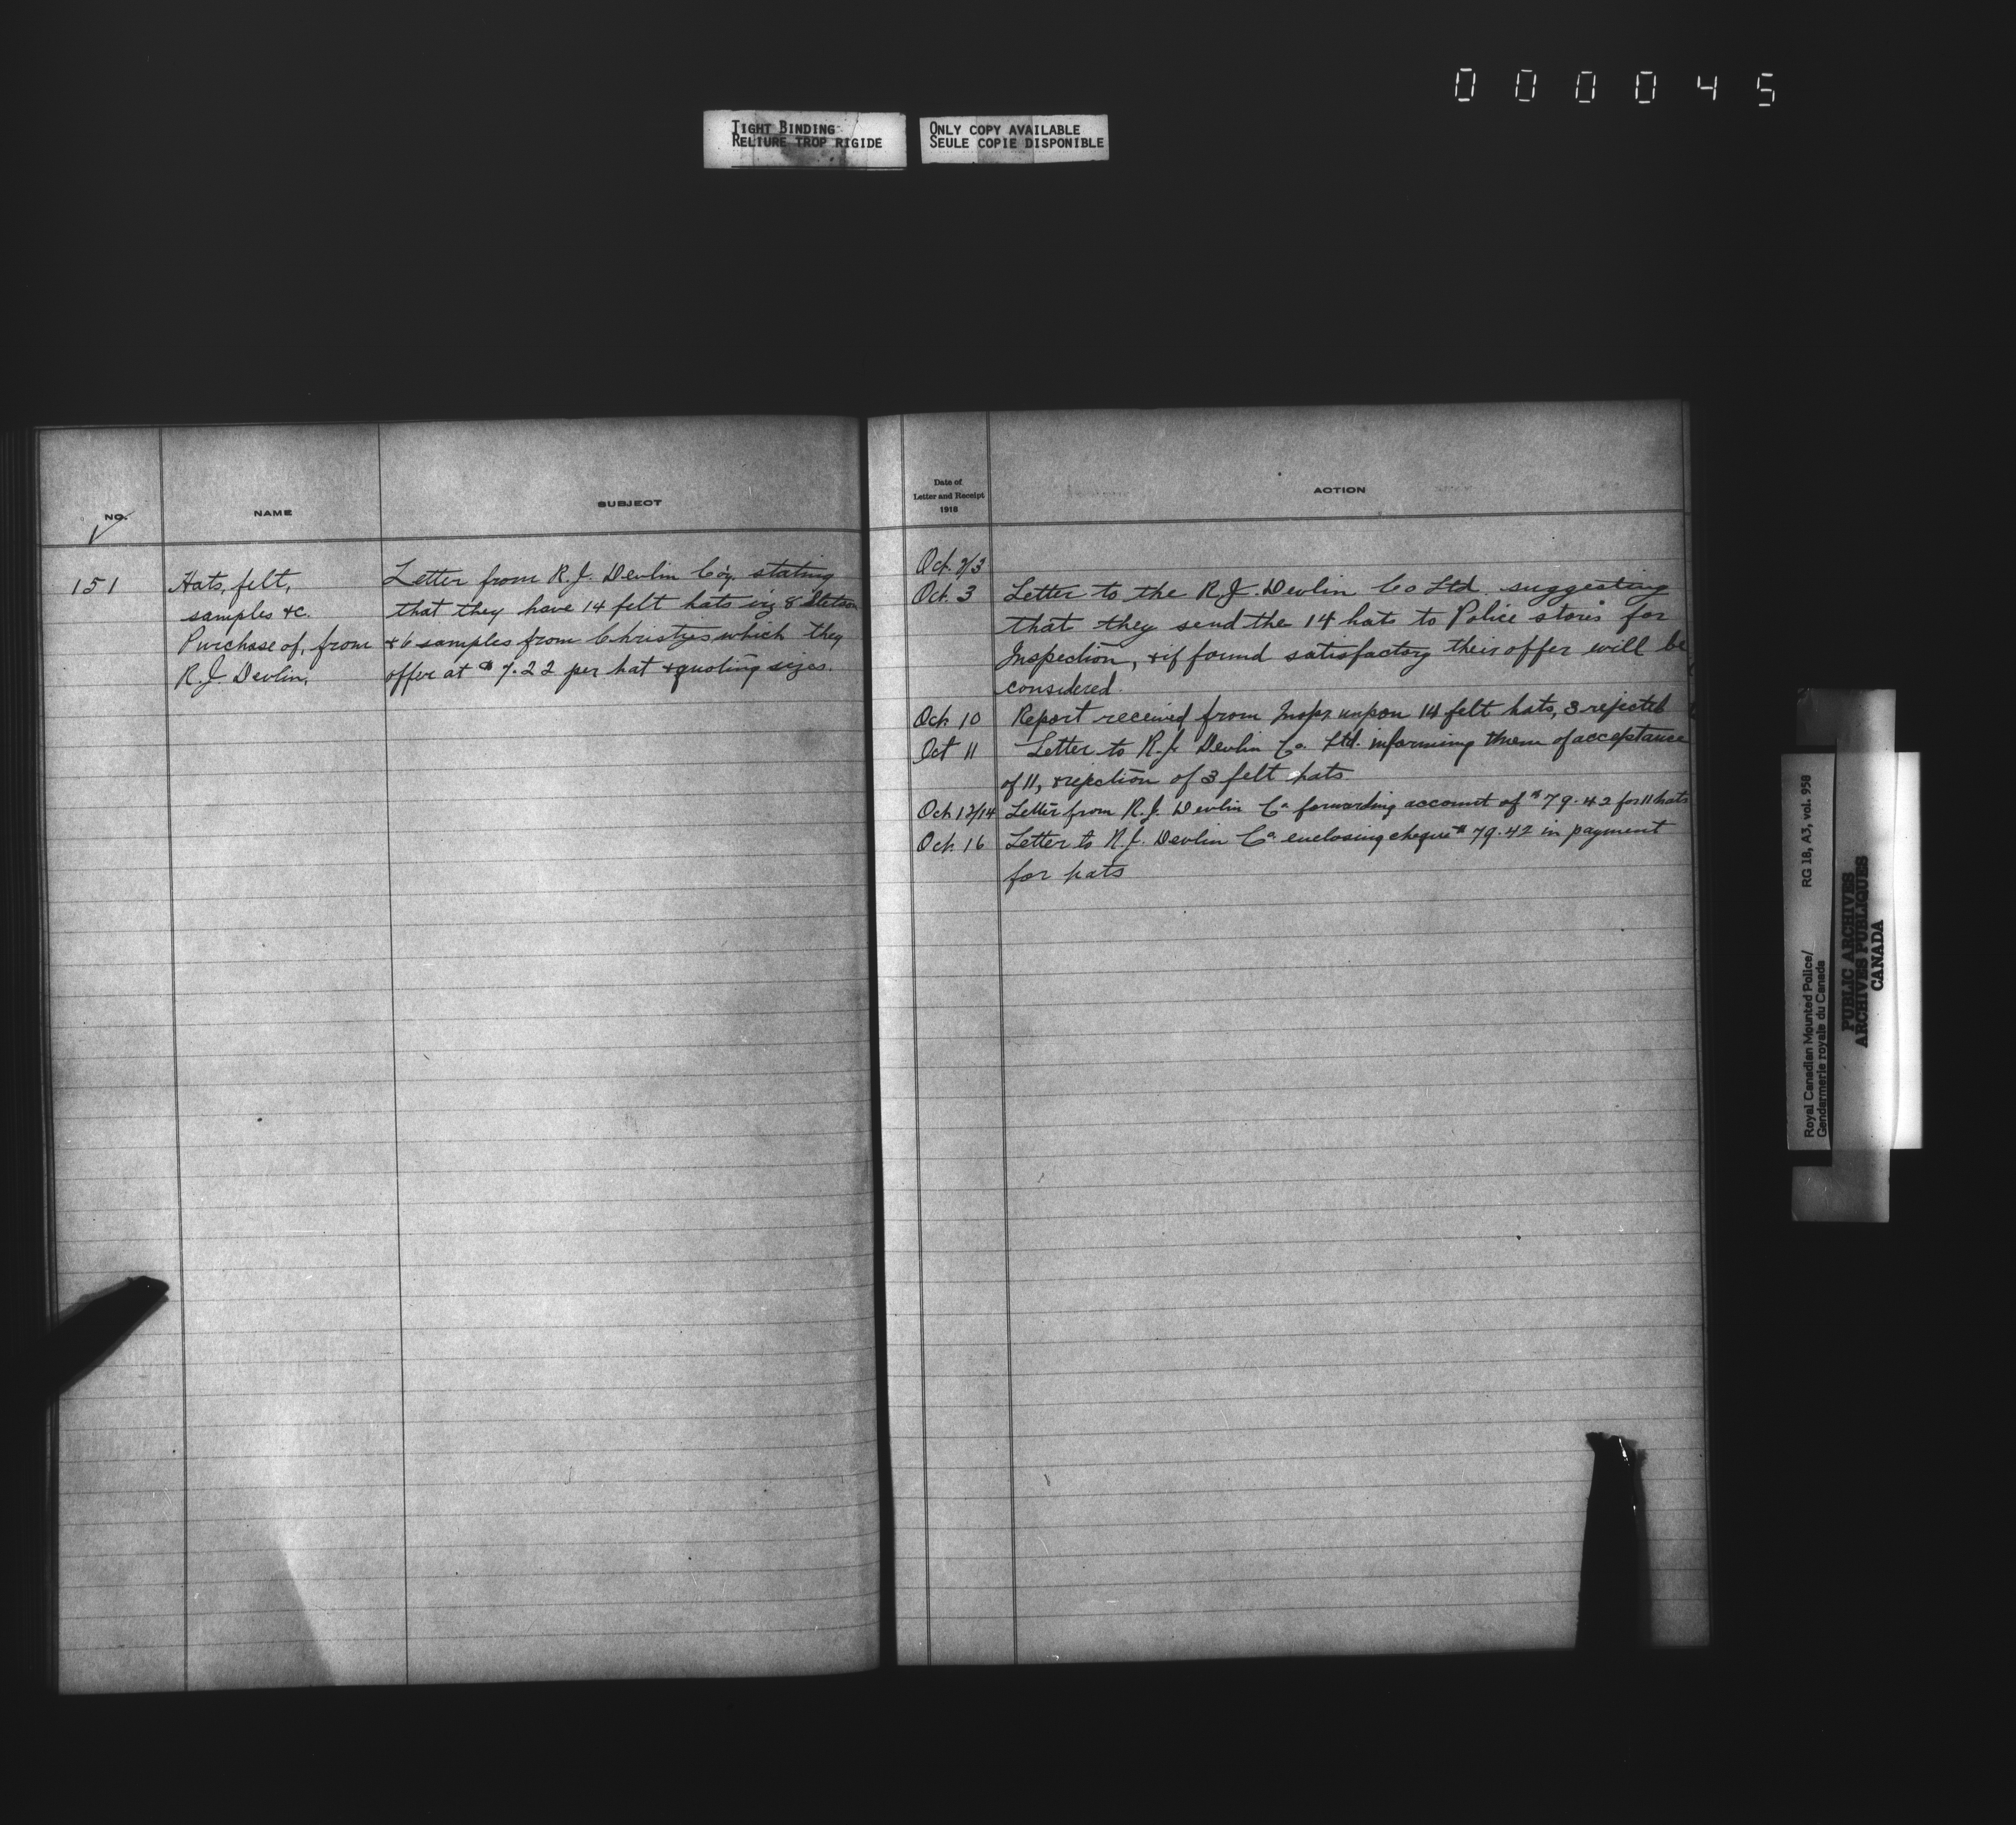 000045
TIGHT BINDING
RELIURE TROP RIGIDE
ONLY COPY AVAILABLE
SEULE COPIE DISPONIBLE
NO.
NAME
SUBJECT
151
Hats, felt,
samples &c.
Purchase of, from
R.J. Devlin.
Letter from R.J. Devlin Co'y. stating
that they have 14 felt hats viz 8 Stetson
& 6 samples from Christys which they
offer at $7.22 per hat & quoting sizes.
Date of
Letter and Receipt
1918
ACTION
Oct. 2/3
Oct. 3 Letter to the R.J. Devlin Co Ltd. suggesting
that they send the 14 hats to Police stores for
Inspection, & if found satisfactory their offer will be
considered.
Oct. 10 Report received from Inspr upon 14 felt hats, 3 rejected
Oct 11 Letter to R.J. Devlin Co. Ltd. informing them of acceptance
of 11, & rejection of 3 felt hats
Oct. 12/14 Letter from R.J. Devlin Co forwarding account of $79.42 for 11 hats
Oct. 16 Letter to R.J. Devlin Co. enclosing cheque $79.42 in payment
for hats
Royal Canadian Mounted Police/
Gendarmerie royale du Canada
RG 18, A3, vol. 958
PUBLIC ARCHIVES
ARCHIVES PUBLIQUES
CANADA